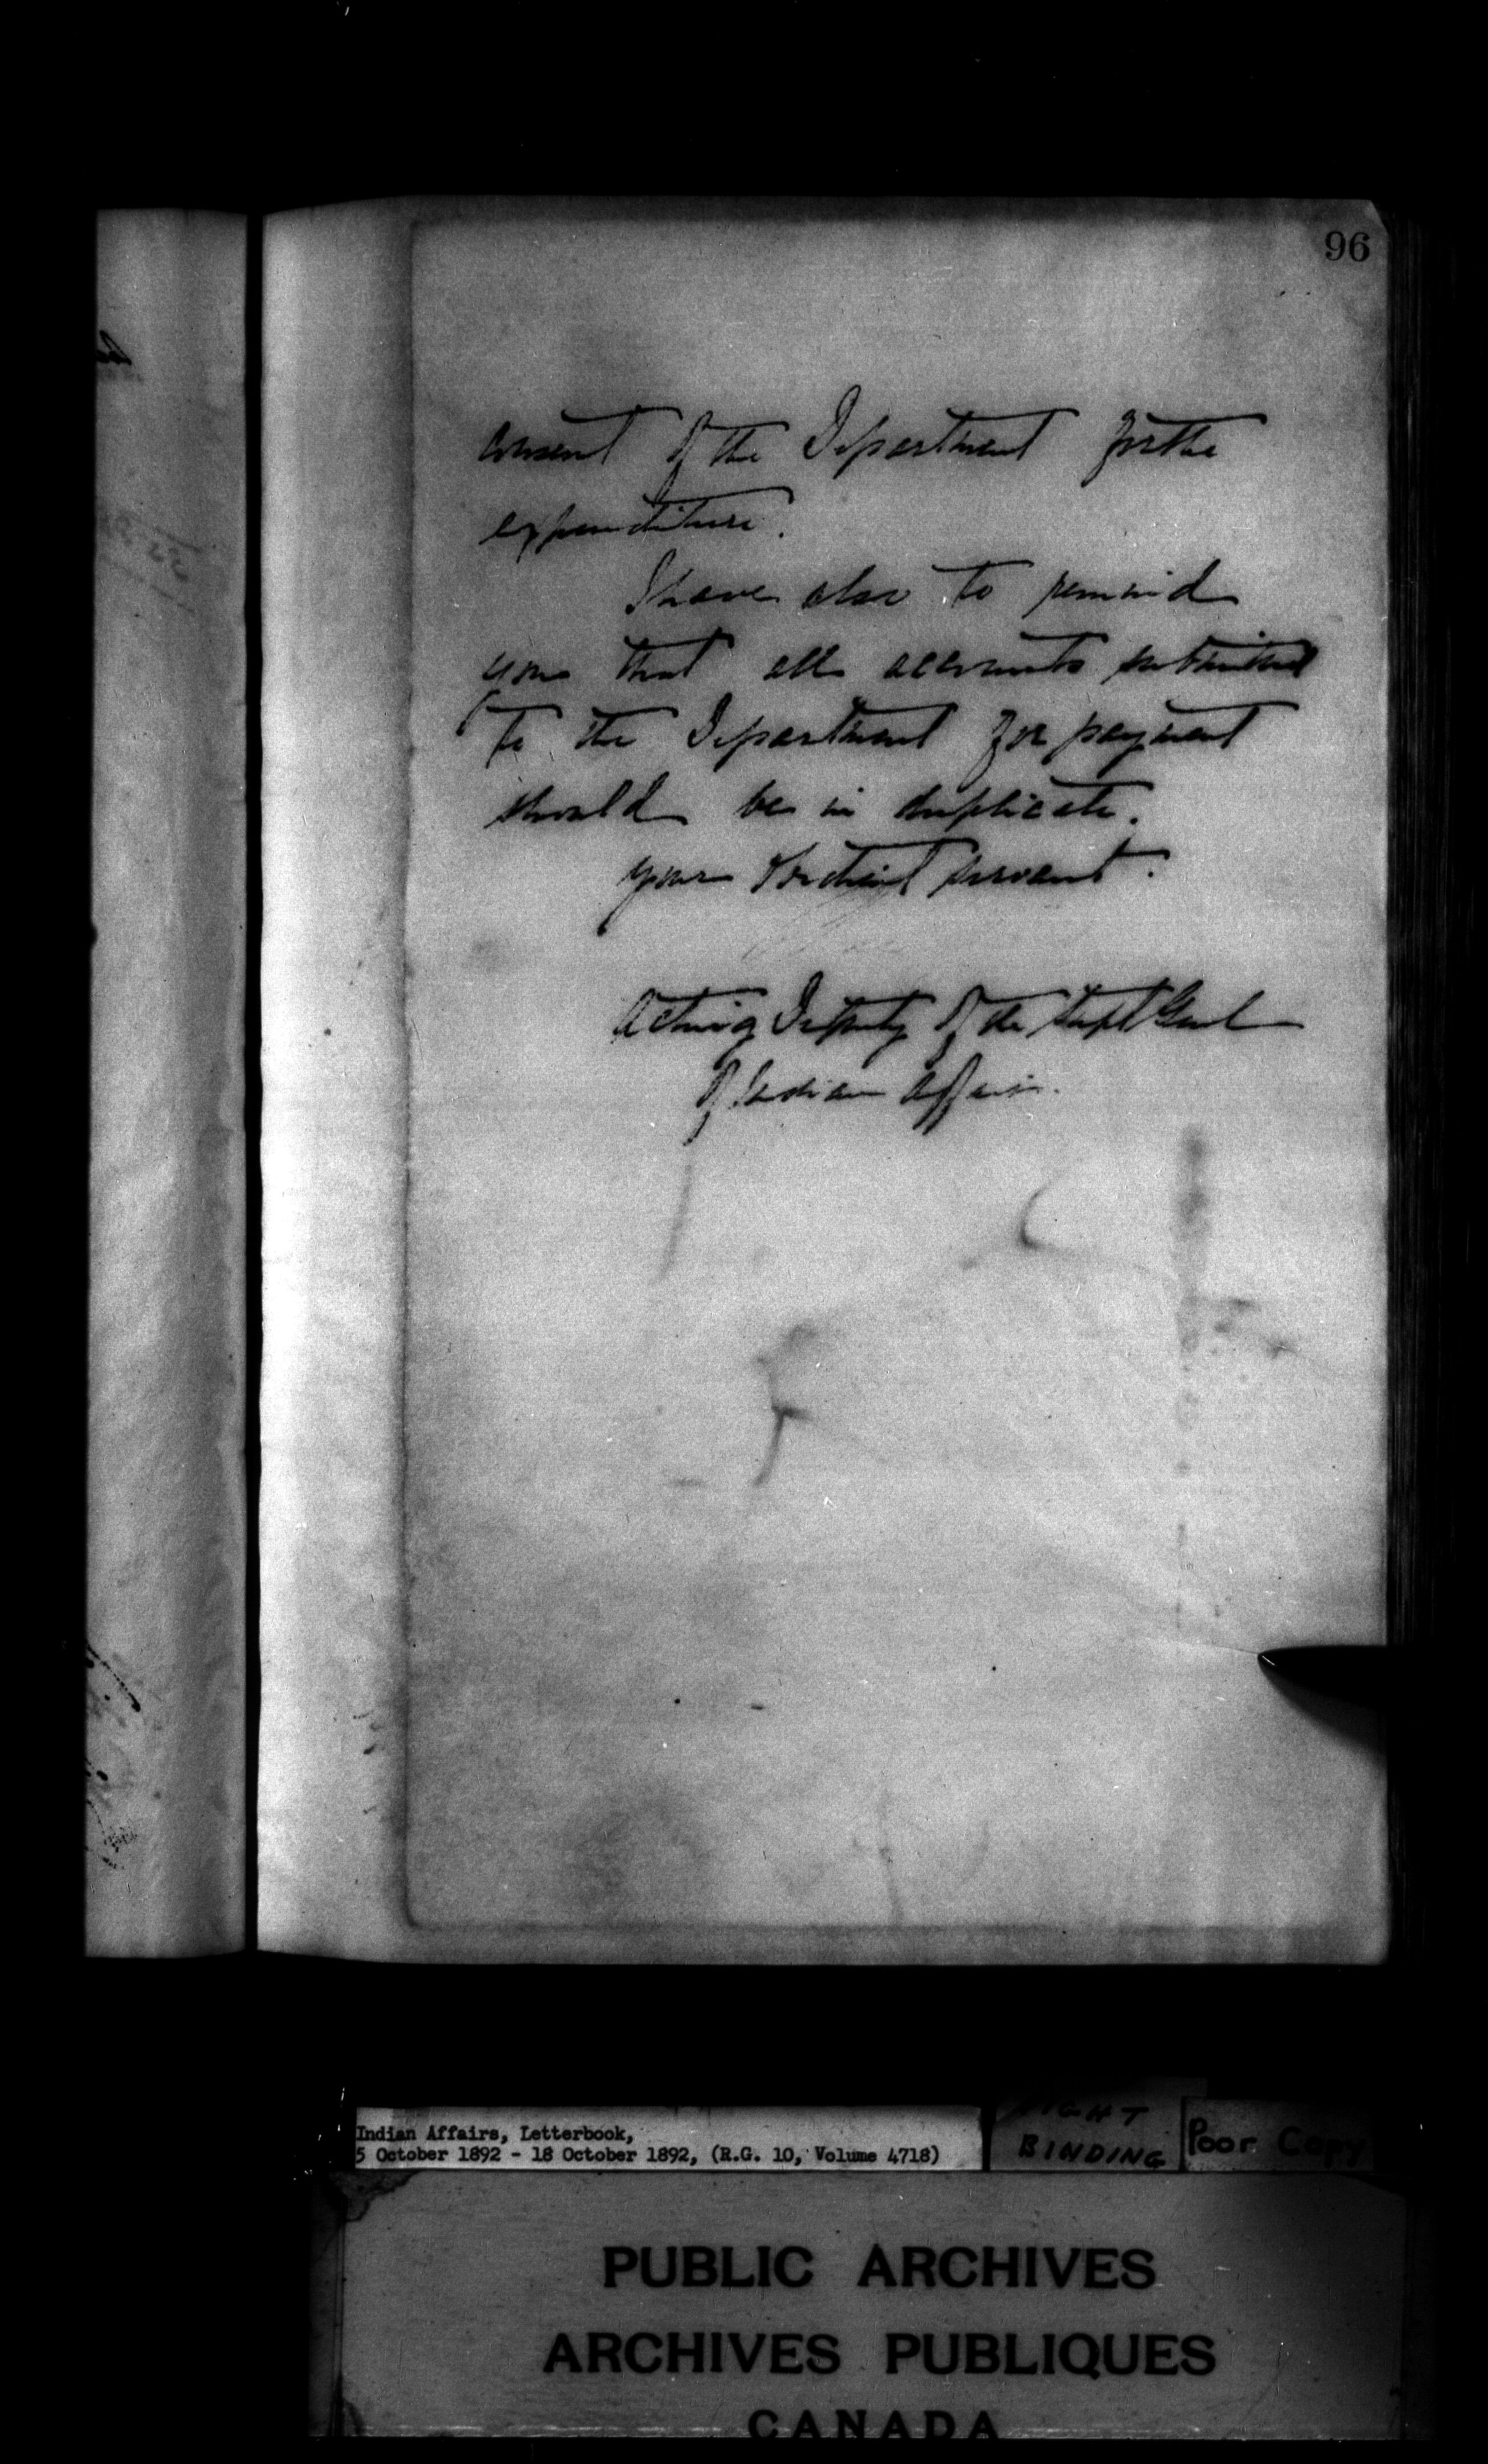 96
consent of the Department for the
expenditure.
I have also to remind
you that all accounts submitted
to the Department for payment
should be in duplicate.
your obedient servant.
Acting Deputy of the Supt Genl
of Indian Affairs.
Indian Affairs, Letterbook,
5 October 1892 - 18 October 1892, (R.G. 10, Volume 4718)
BINDING
Poor Copy
PUBLIC ARCHIVES
ARCHIVES PUBLIQUES
CANADA